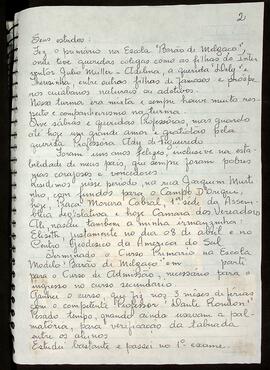 2
Seus estudos:
Fez o primário na Escola "Barão de Melgaço",
onde teve queridas colegas como as filhas do Inter
ventor Júlio Müller - Adilina, a querida "Lely" e
Theresinha, entre outros filhos de famosos e próspe
ros cuiabanos naturais ou adotivos.
Nossa turma era mista e sempre houve muito res
peito e companheirismo na turma.
Tive sábias e queridas Professoras, mas guardo
até hoje um grande amor e gratidão pela
querida Professora Eldy de Figueiredo.
Foram uns anos felizes, inclusive na esta
bilidade de meus pais, que sempre foram pobres
mas corajosos e vencedores.
Residimos, neste período, na rua Joaquim Murti
nho, com fundos para o Campo D'Ourique,
hoje, Praça Moreira Cabral, 1ª sede da Assem
bléia Legislativa e hoje Câmara dos Vereadores.
Ali, nasceu também a minha irmanzinha:
Elisete, justamente no dia 08 de abril e no
Centro Geodésico da América do Sul
Terminado o Curso Primário na Escola
Modelo "Barão de Melgaço" em parti
para o Curso de Admissão, necessário para o
ingresso no curso secundário.
Ganhei o curso, que fiz nos 3 meses de férias
com o competente Professor "Dante Rondon".
Pesado tempo, quando ainda usavam a pal-
matória, para verificação da tabuada
entre os alunos.
Estudei bastante e passei no 1º exame.